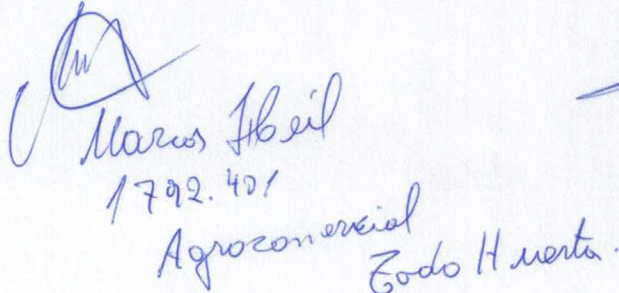 Marcos
1792.401
Agrocomercial
Todo Huerta.